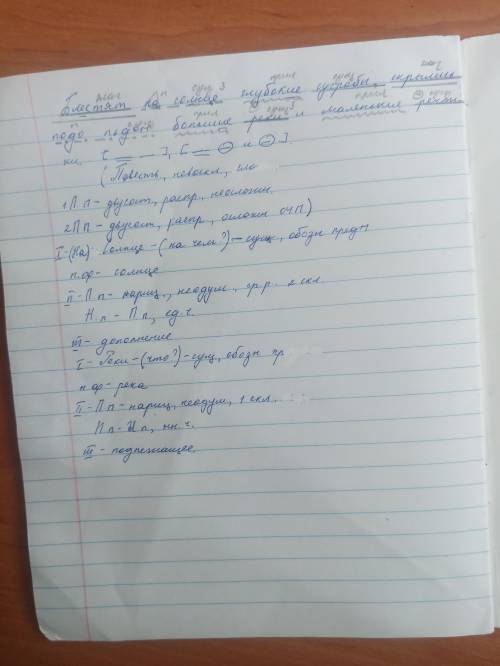 глаг п сущ 3 прил сущ глаг
Блестят на солнце глубокие сугробы, скрылись
п сущ 3 прил прил сущ
подо льдом большие реки и маленькие речки
ки. [ ═ — ], [ ═ ⊖ и ⊖ ].
(Повеств, невоскл, сло
1 П.п - двусост, распр, неослож.
2 П П - двусост, распр, ослож ОЧП)
I - (На) солнце - (на чем?) - сущ, обозн предм
н.ф - солнце
II - П п - нариц, неодуш, ср.р. 2 скл
Н.п - П п, ед.ч.
III - дополнение
I - Реки - (что?) - сущ, обозн пр
н.ф - река
II - П п - нариц, неодуш, 1 скл.
Н п - И п, мн.ч.
III - подлежащее.